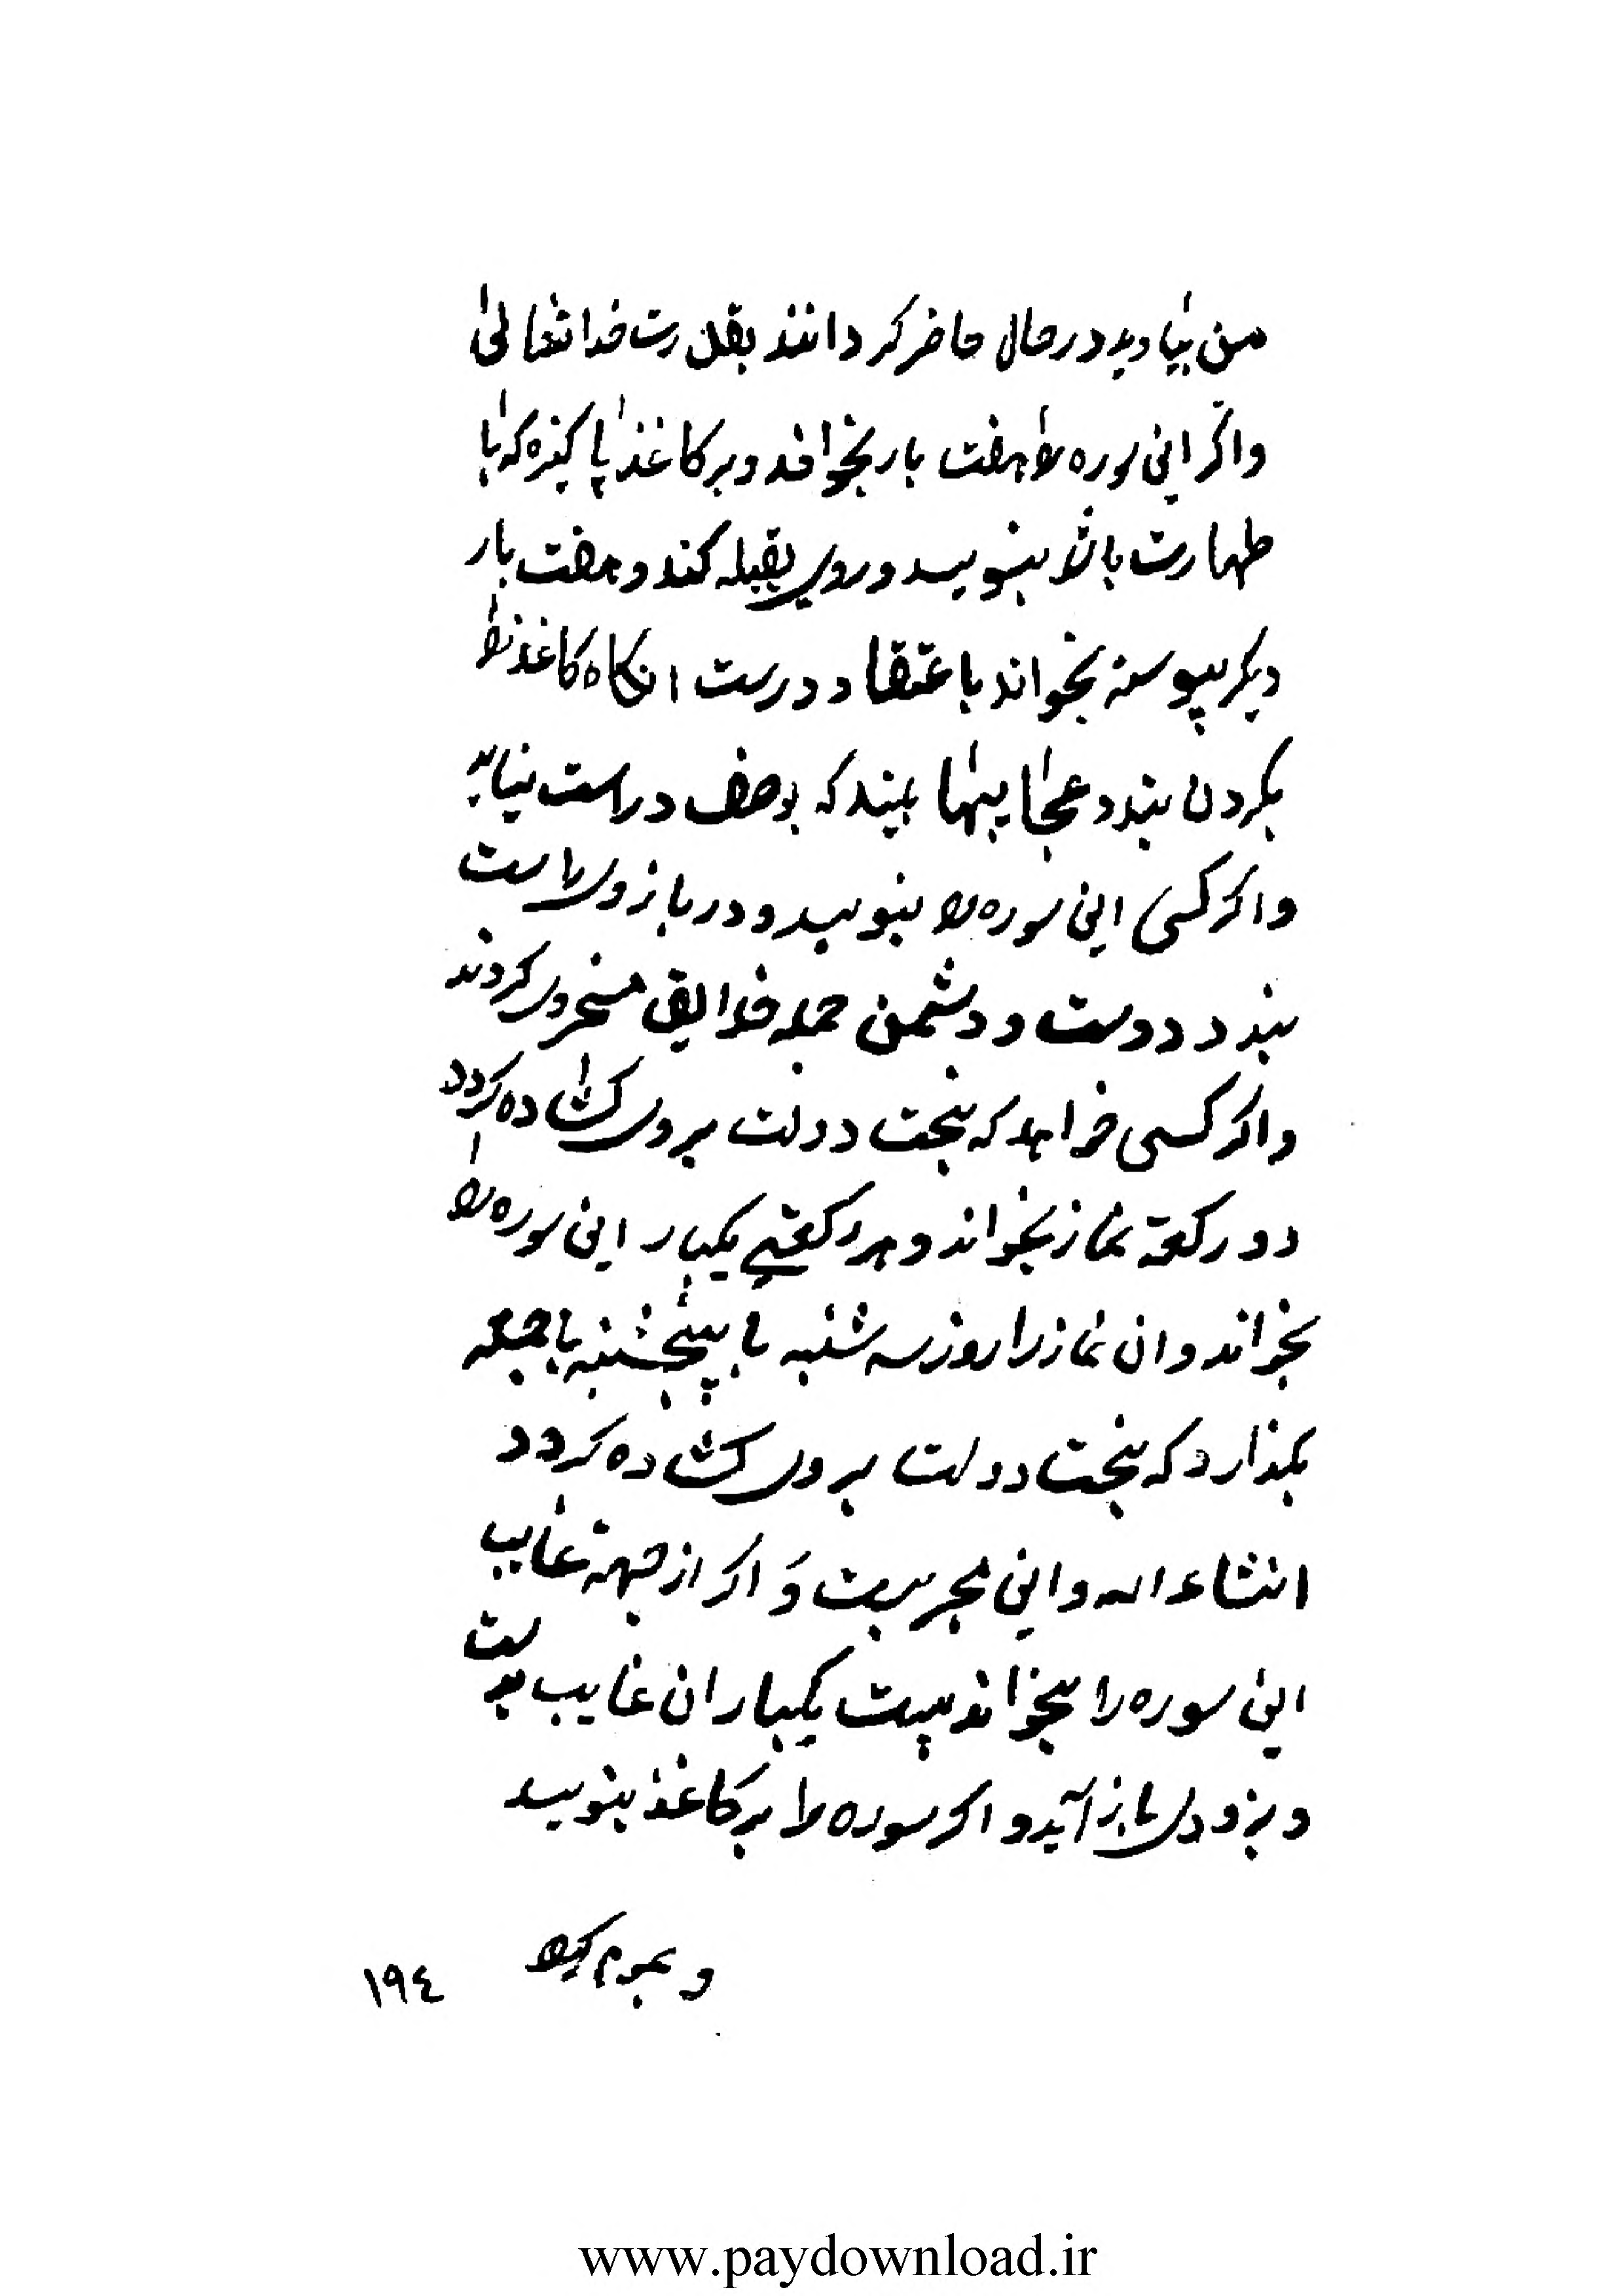 من بیاوید در حال حاضر کردانند بقدرت خدا تعالی
واکر این سوره را هفت بار بخواند و بر کاغذ پاکیزه که با
طهارت باشد بنویسد و روی بقبله کند و هفت بار
دیکر پیوسته بخواند باعتقاد درست انکاه کاغذ را
بکردن بندد و عجایبها بیند که بوصف در است نیاید
واکر کسی این سوره را بنویسد و در بازوی راست
بندد دوست و دشمن جمله خلایق مسخر وی کردند
واکر کسی خواهد که بخت دولت بر وی کشاده کردد
دو رکعة نماز بخواند و هر رکعتی یکبار این سوره را
بخواند وان نماز را روز سه شنبه یا پنجشنبه یا جمعه
بکذارد که بخت دولت بر وی کشاده کردد
انشاء اله واین مجربست وَ اکر از جهة غایب
این سوره را بخواند بیست یکبار ان غایب
و بزودی باز آید و اکر سوره را بر کاغذ بنویسد
و بموم کیرد
١٩٤
www.paydownload.ir